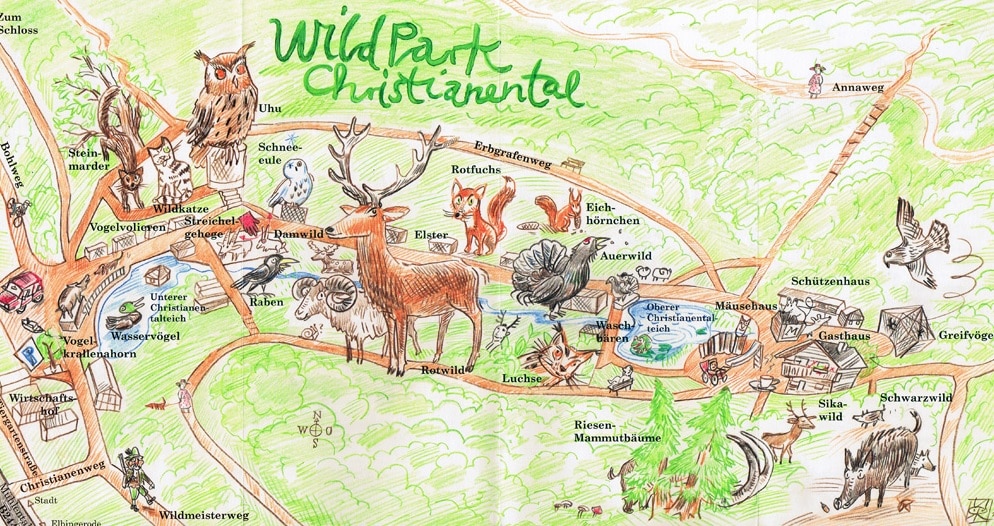 Zum
Schloss
WildPark
Christianental
Annaweg
Uhu
Stein-
marder
Schnee-
eule
Erbgrafenweg
Bohlweg
Rotfuchs
Wildkatze
Eich-
hörnchen
Vogelvolieren
Streichel-
gehege
Damwild
Elster
Auerwild
Schützenhaus
Unterer
Christianen-
talteich
Raben
Oberer
Christianental-
teich
Mäusehaus
Wasservögel
Wasch-
bären
Gasthaus
Greifvöge
Vogel-
krallenahorn
P
Rotwild
Luchse
Wirtschafts-
hof
Sika-
wild
Schwarzwild
N
W O
S
Riesen-
Mammutbäume
Christianenweg
Stadt
Wildmeisterweg
Elbingerode